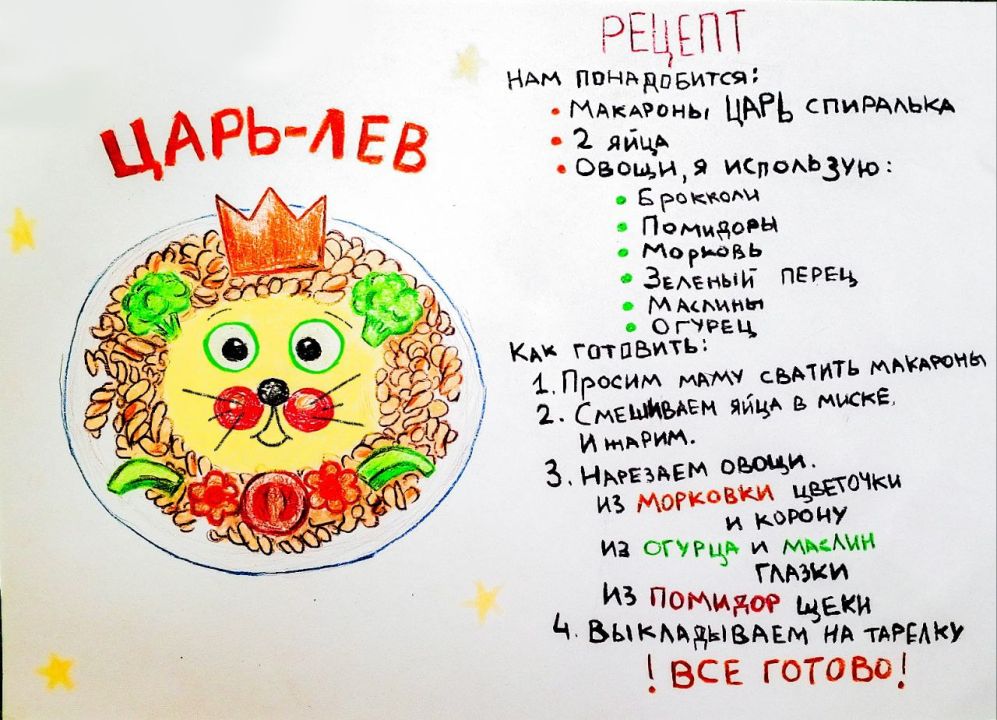 ЦАРЬ-ЛЕВ
РЕЦЕПТ
НАМ ПОНАДОБИТСЯ:
• МАКАРОНЫ ЦАРЬ СПИРАЛЬКА
• 2 ЯЙЦА
• ОВОЩИ, Я ИСПОЛЬЗУЮ:
• БРОККОЛИ
• ПОМИДОРЫ
• МОРКОВЬ
• ЗЕЛЕНЫЙ ПЕРЕЦ
• МАСЛИНЫ
• ОГУРЕЦ
КАК ГОТОВИТЬ:
1. ПРОСИМ МАМУ СВАТИТЬ МАКАРОНЫ
2. СМЕШИВАЕМ ЯЙЦА В МИСКЕ.
И ЖАРИМ.
3. НАРЕЗАЕМ ОВОЩИ.
ИЗ МОРКОВКИ ЦВЕТОЧКИ
И КОРОНУ
ИЗ ОГУРЦА И МАСЛИН
ГЛАЗКИ
ИЗ ПОМИДОР ЩЕКИ
4. ВЫКЛАДЫВАЕМ НА ТАРЕЛКУ
! ВСЕ ГОТОВО!